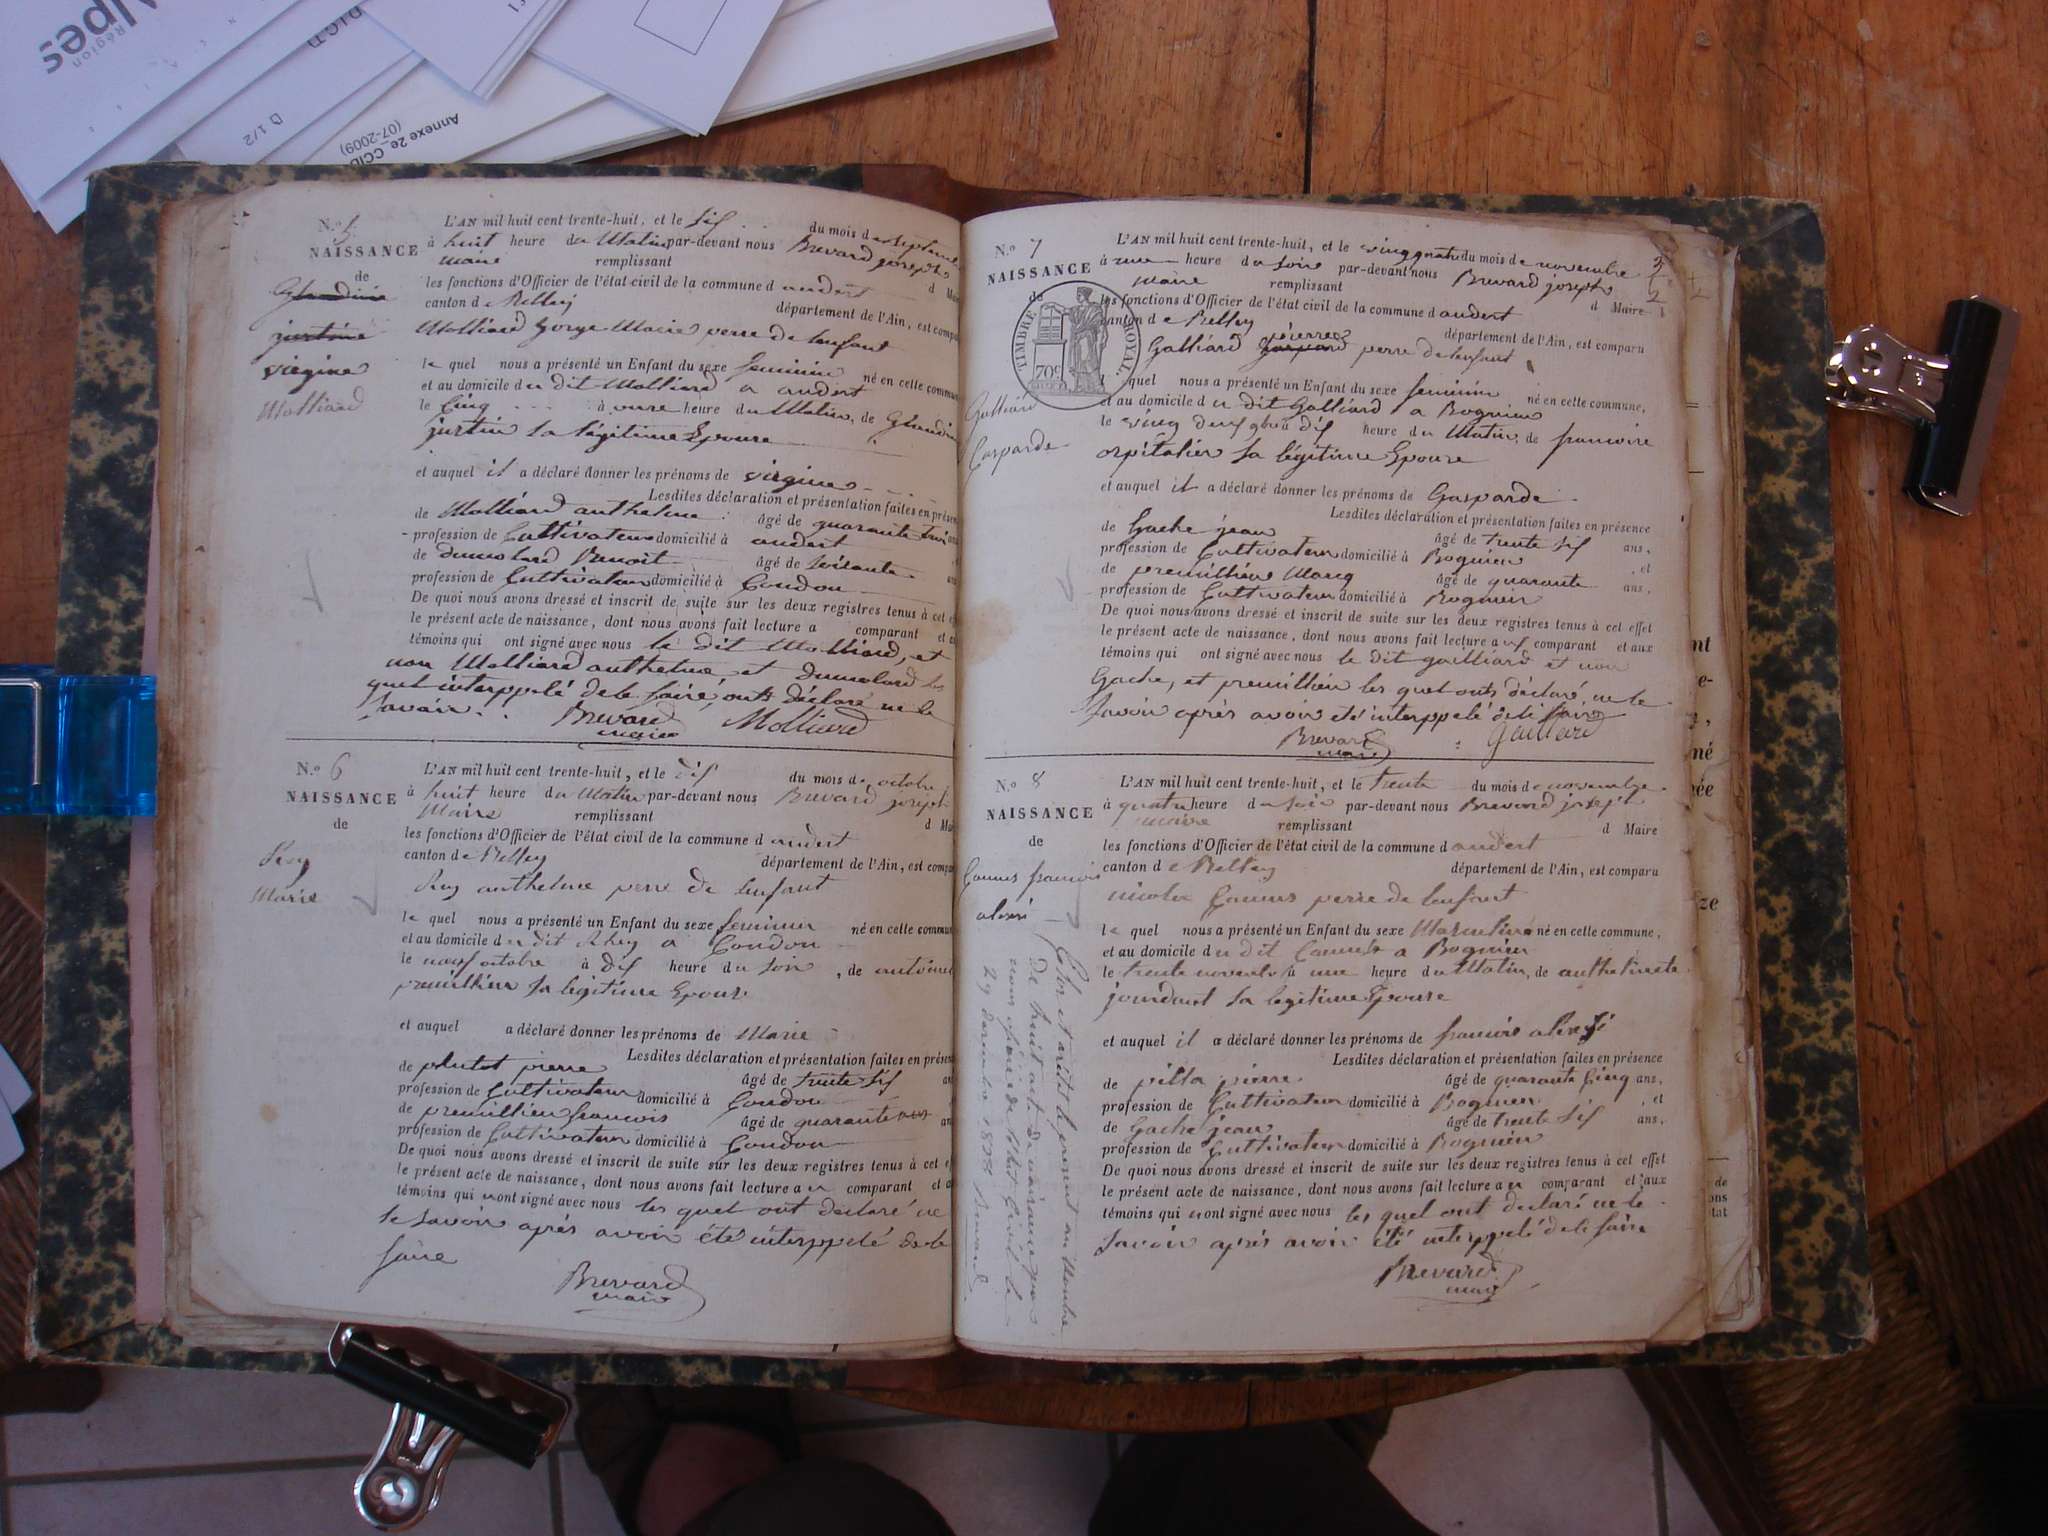 Région
Alpes
D 1/2
Annexe 2e_CCID
(07-2009)
N.º 5
NAISSANCE
de
Glaudine
justine
virgine
Molliard
L'AN mil huit cent trente-huit, et le six du mois de septembre
à huit heure du Matin par-devant nous Brevard joseph
maire remplissant d Maire
les fonctions d'Officier de l'état civil de la commune d andert
canton de Belley département de l'Ain, est comparu
Molliard Gorge Marie perre de lenfant
le quel nous a présenté un Enfant du sexe feminin né en cette commune
et au domicile du dit Molliard a andert
le Cinq à onze heure du Matin, de Glaudine
justin sa légitime Epouse
et auquel il a déclaré donner les prénoms de virgine
Lesdites déclaration et présentation faites en présence
de Molliard anthelme âgé de quarante trois ans
profession de Cultivateur domicilié à andert
de dumolard Benoit âgé de soisante ans
profession de Cultivateur domicilié à Coudon
De quoi nous avons dressé et inscrit de suite sur les deux registres tenus à cet effet
le présent acte de naissance, dont nous avons fait lecture a comparant et
témoins qui ont signé avec nous le dit Molliard, et
non Molliard anthelme et dumolard les
quel interppelé de le faire, onts déclaré ne le
savoir.
Brevard Molliard
maire
N.º 6
NAISSANCE
de
Rey
Marie
L'AN mil huit cent trente-huit, et le dix du mois de octobre
à huit heure du Matin par-devant nous Brevard joseph
Maire remplissant d Maire
les fonctions d'Officier de l'état civil de la commune d andert
canton de Belley département de l'Ain, est comparu
Rey anthelme perre de lenfant
le quel nous a présenté un Enfant du sexe feminin né en cette commune
et au domicile du dit Rhey a Coudon
le neuf octobre à dix heure du soir, de antoinet
premillieu sa legitime Epouse
et auquel a déclaré donner les prénoms de Marie
Lesdites déclaration et présentation faites en présence
de plutot pierre âgé de trente six ans
profession de Cultivateur domicilié à Coudon
de premillieu francois âgé de quarante ans
profession de Cultivateur domicilié à Coudon
De quoi nous avons dressé et inscrit de suite sur les deux registres tenus à cet effet
le présent acte de naissance, dont nous avons fait lecture au comparant et
témoins qui nont signé avec nous les quel ont déclaré ne
le savoir aprés avoir été interppelé de le
faire
Brevard
maire
N.º 7
NAISSANCE
de
TIMBRE ROYAL
70c
Galliard
Gasparde
L'AN mil huit cent trente-huit, et le du mois de novembre
à une heure du soire par-devant nous Brevard joseph
maire remplissant d Maire
les fonctions d'Officier de l'état civil de la commune d andert
canton de Belley département de l'Ain, est comparu
pierre
Galliard gaspard perre de lenfant
le quel nous a présenté un Enfant du sexe feminin né en cette commune,
et au domicile du dit Galliard a Bognieu
le à dix heure du Matin, de francoise
ospitalier sa légitime Epouse
et auquel il a déclaré donner les prénoms de Gasparde
Lesdites déclaration et présentation faites en présence
de Gache jean âgé de trente six ans,
profession de Cultivateur domicilié à Bognieu, et
de premillieu Marq âgé de quarante ans,
profession de Cultivateur domicilié à Bognieu
De quoi nous avons dressé et inscrit de suite sur les deux registres tenus à cet effet
le présent acte de naissance, dont nous avons fait lecture aux comparant et aux
témoins qui ont signé avec nous le dit galliard et non
Gache, et premillieu les quel onts déclaré ne le
Savoir aprés avoir eté interppelé de le faire
Brevard Galliard
maire
N.º 8
NAISSANCE
de
Camus francois
alexi
L'AN mil huit cent trente-huit, et le trente du mois de novembre
à quatre heure du soir par-devant nous Brevard joseph
maire remplissant d Maire
les fonctions d'Officier de l'état civil de la commune d andert
canton de Belley département de l'Ain, est comparu
nicolas Camus perre de lenfant
le quel nous a présenté un Enfant du sexe Masculin né en cette commune,
et au domicile du dit Camus a Bognieu
le trente novembre à une heure du Matin, de anthelmete
jourdant sa legitime Epouse
et auquel il a déclaré donner les prénoms de francois alexi
Lesdites déclaration et présentation faites en présence
de pilla pierre âgé de quarante Cinq ans,
profession de Cultivateur domicilié à Bognieu, et
de Gache jean âgé de trente six ans,
profession de Cultivateur domicilié à Bognieu
De quoi nous avons dressé et inscrit de suite sur les deux registres tenus à cet effet
le présent acte de naissance, dont nous avons fait lecture au comparant et aux
témoins qui nont signé avec nous les quel ont declaré ne le
Savoir aprés avoir été interppelé de le faire
Brevard
maire
Clos et arrêté le présent au nombre
De huit acte de naissance par
nous officier de l'etat Civil le
29 décembre 1838 Brevard